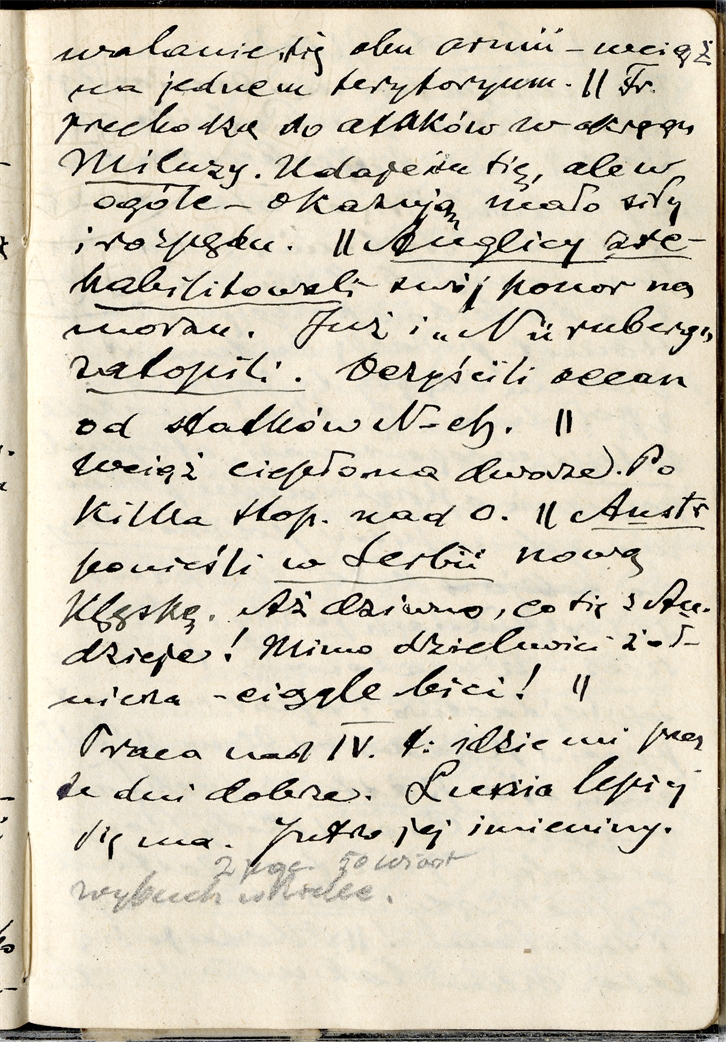 walanie się obu armii – wciąż
na jednem terytoryum. || Fr.
przechodzą do ataków w okręgu
Miluzy. Udaje im się, ale w
ogóle – okazują mało siły
i rozpędu. || Anglicy zre-
habilitowali swój honor na
morzu. Już i „Nürnberg"
zatopili. Oczyścili ocean
od statków N–ch. ||
Wciąż ciepło na dworze. Po
kilka stop. nad 0. || Austr
ponieśli w Serbii nową
klęskę. Aż dziwno, co się z Au.
dzieje! Mimo dzielności żoł-
nierza – ciągle bici! ||
Praca nad IV. t: idzie mi przez
te dni dobrze. Lucia lepiej
się ma. Jutro jej imieniny.
50 wiorst
wybuch